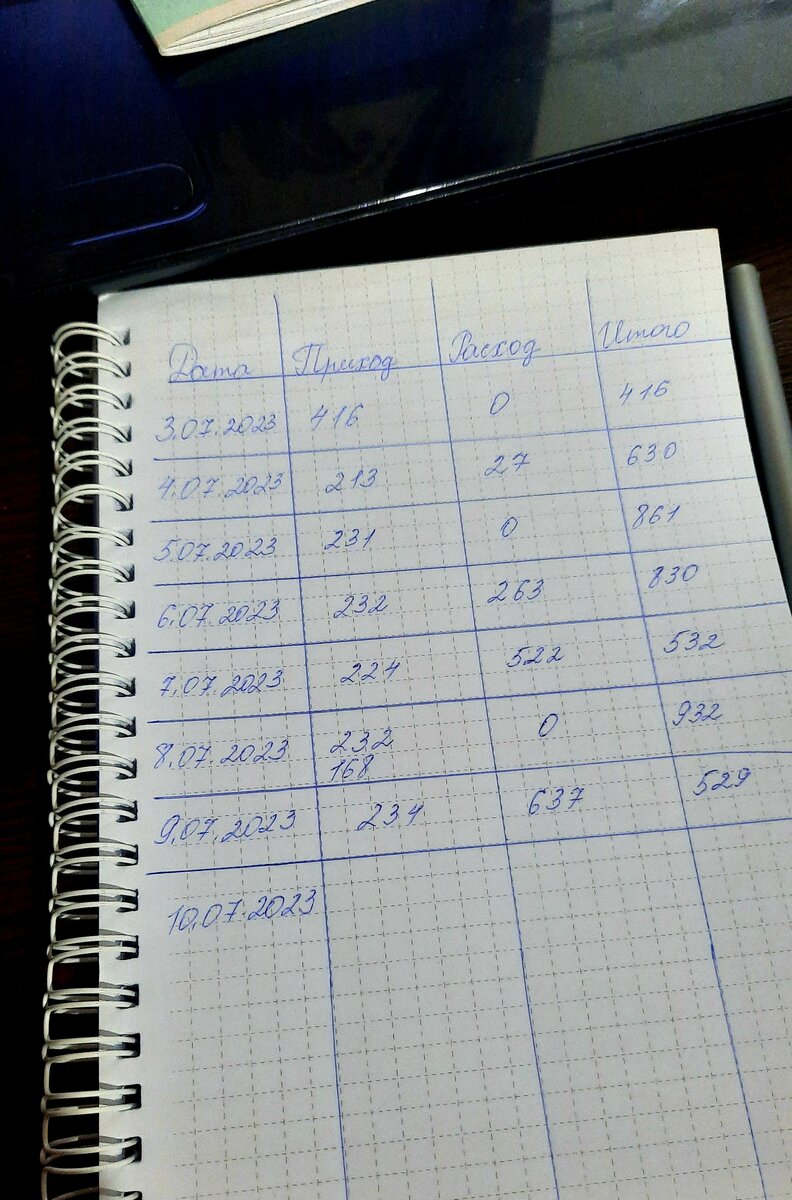 Дата Приход Расход Итого
3.07.2023 416 0 416
4.07.2023 213 27 630
5.07.2023 231 0 861
6.07.2023 232 263 830
7.07.2023 224 522 532
8.07.2023 232 0 932
168
9.07.2023 234 637 529
10.07.2023